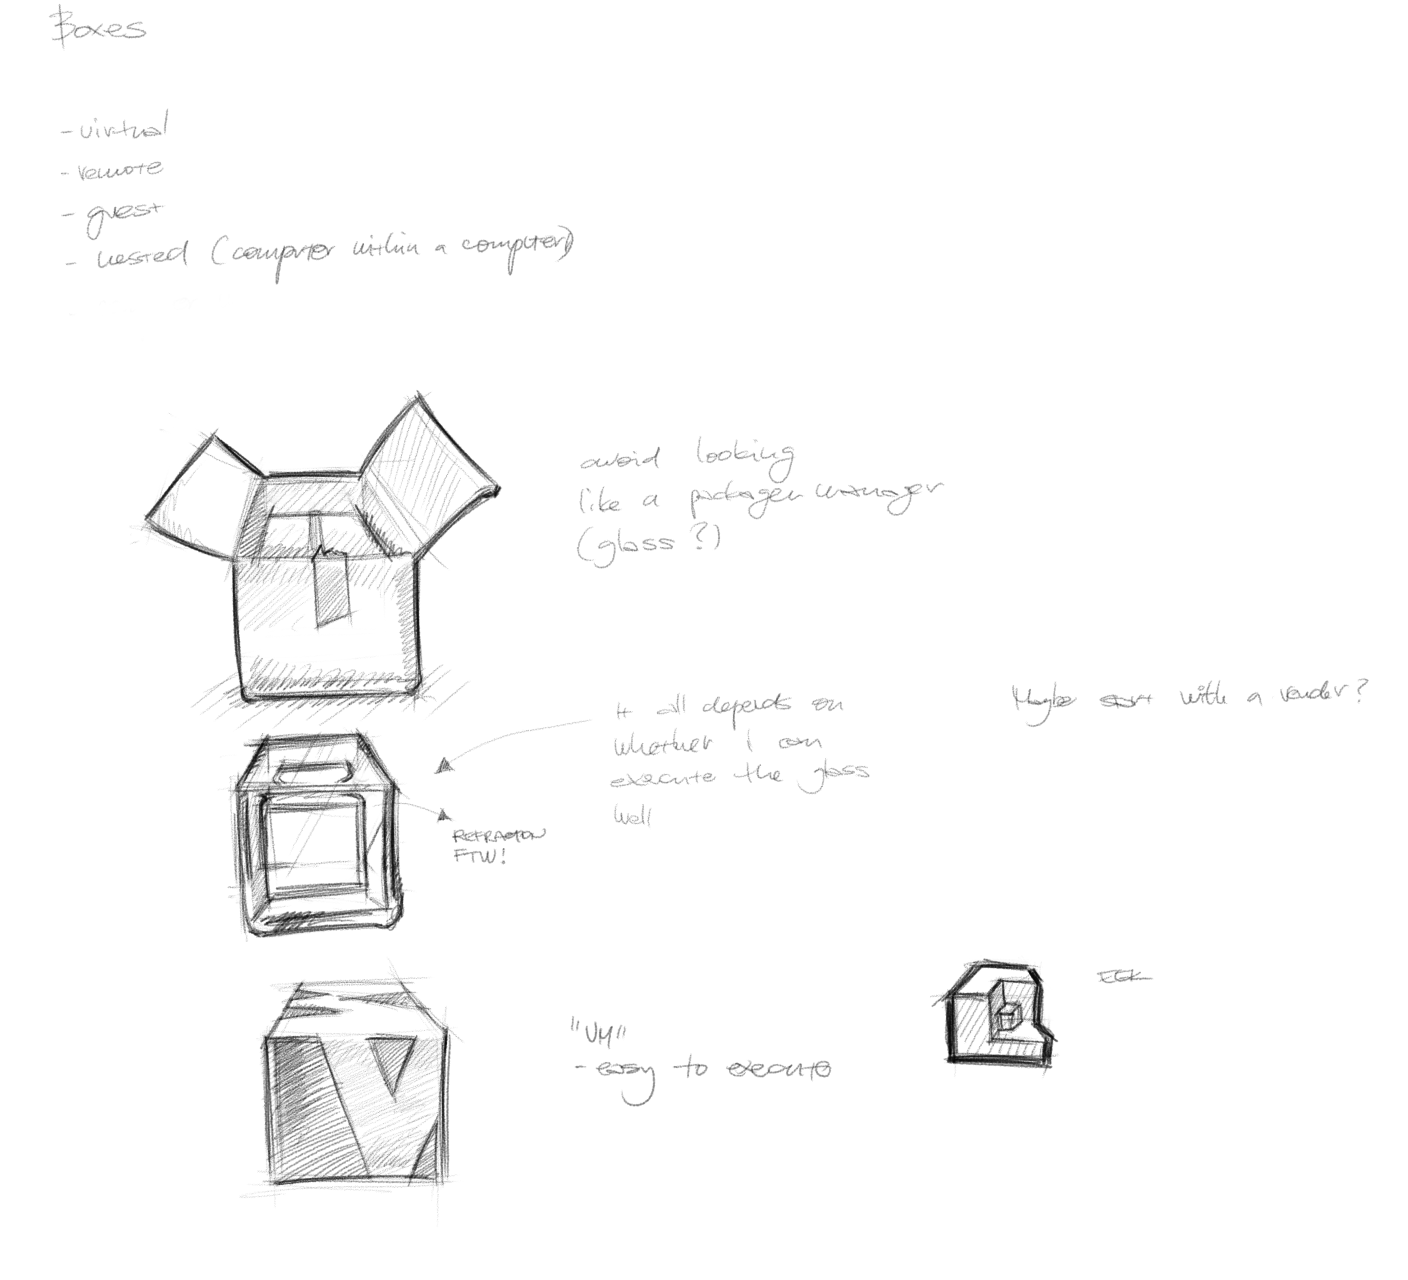 Boxes
- virtual
- remote
- guest
- nested (computer within a computer)
avoid looking
like a packagen manager
(glass?)
It all depends on
whether I can
execute the glass
well
Maybe start with a render?
REFRACTION
FTW!
"VM"
- easy to execute
EEK